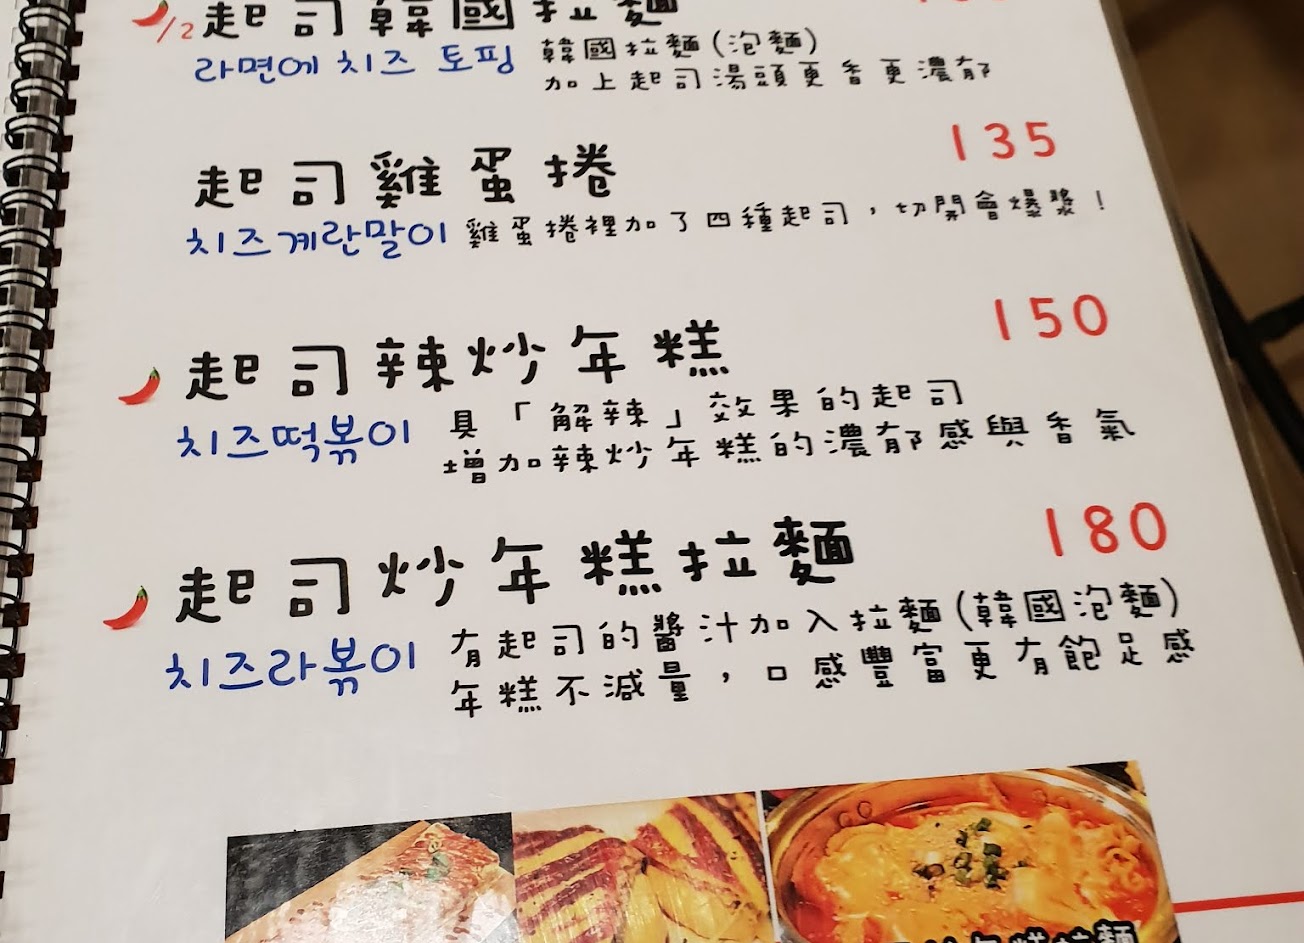 1/2 起司韓國拉麵
라면에 치즈 토핑 韓國拉麵(泡麵)
加上起司湯頭更香更濃郁
起司雞蛋捲 135
치즈계란말이 雞蛋捲裡加了四種起司，切開會爆漿！
起司辣炒年糕 150
치즈떡볶이 具「解辣」效果的起司
增加辣炒年糕的濃郁感與香氣
起司炒年糕拉麵 180
치즈라볶이 有起司的醬汁加入拉麵(韓國泡麵)
年糕不減量，口感豐富更有飽足感
年糕拉麵